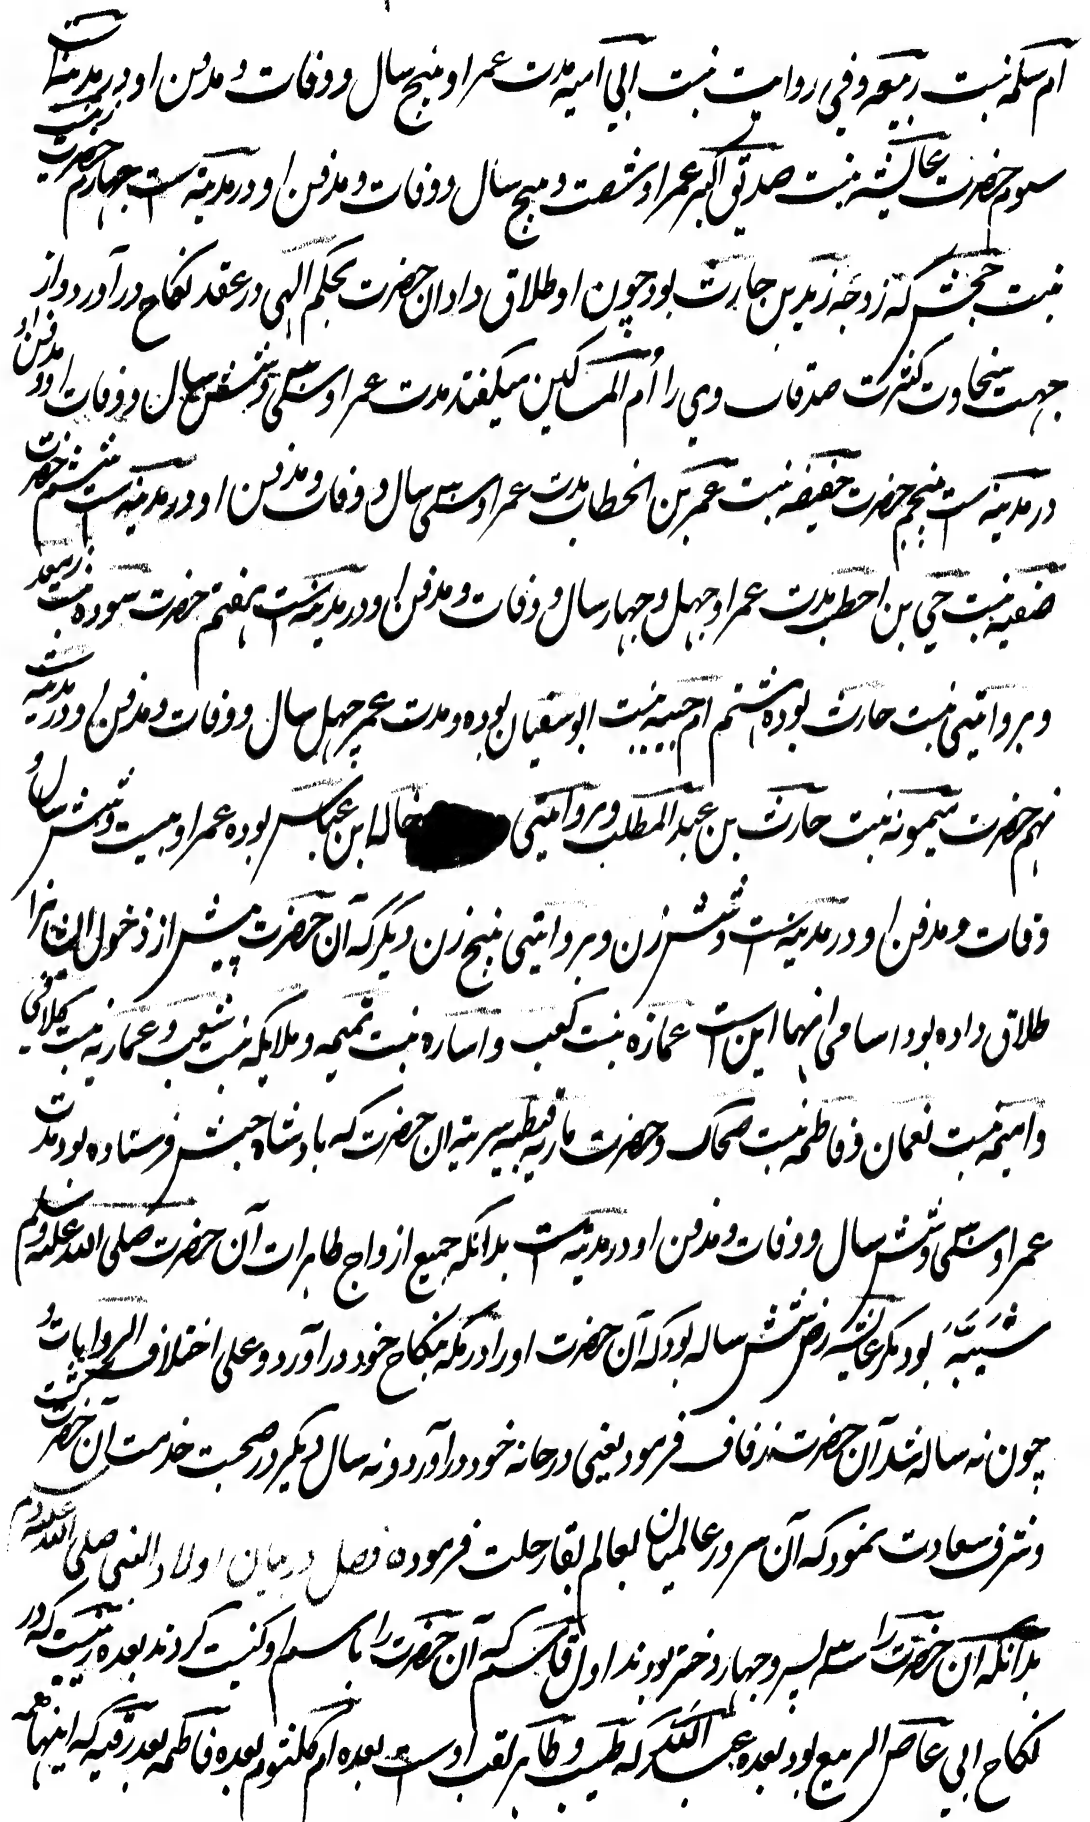 ام سلمه بنت ربیعه وفی روایت بنت ابی امیه مدت عمر او پنج سال و وفات و مدفن او در مدینه است
سوم حضرت عائشه بنت صدیق اکبر عمر او شصت و پنج سال و وفات و مدفن او در مدینه است چهارم حضرت زینب
بنت حجش که زوجه زید بن حارث بود چون او طلاق داد آن حضرت بحکم الهی در عقد نکاح در آورد و از
جهت سخاوت کثرت صدقات وی را اُم المساکین میگفتند مدت عمر او سی و شش سال و وفات او و مدفن او
در مدینه است پنجم حضرت حفیفه بنت عمر بن الخطاب مدت عمر او سی سال و وفات و مدفن او در مدینه است ششم حضرت
صفیه بنت حی بن احطب مدت عمر او چهل و چهار سال و وفات و مدفن او در مدینه است هفتم حضرت سوده بنت ربیعه
و بروایتی بنت حارث بوده هشتم ام حبیبه بنت ابو سفیان بوده و مدت عمر چهل سال و وفات و مدفن او در مدینه است
نهم حضرت میمونه بنت حارث بن عبد المطلب و بروایتی خاله ابن عباس بوده عمر او بیست و شش سال و
وفات و مدفن او در مدینه است و شش زن و بروایتی پنج زن دیگر که آن حضرت پیش از دخول ایشانرا
طلاق داده بود اسامی اینها این است عمازه بنت کعب و اساره بنت تمیمه و ملایکه بنت شعیب و عماریه بنت کلافی
و امیمه بنت نعمان و فاطمه بنت ضحاک و حضرت ماریه قبطیه سریه ان حضرت که بادشاه حبش فرستاده بود مدت
عمر او سی و شش سال و وفات و مدفن او در مدینه است بدانکه جمیع ازواج طاهرات آن حضرت صلی الله علیه وسلم
شیبه بود مگر عائشه رض شش ساله بود که آن حضرت او را در مکه بنکاح خود در آورد و علی اختلاف الروایات و
چون نه ساله شد آن حضرت زفاف فرمود یعنی در خانه خود در آورد و نه سال دیگر در صحبت خدمت آن حضرت
و شرف سعادت نمود که آن سرور عالمیان بعالم بقا رحلت فرموده فصل در بیان اولاد النبی صلی الله علیه وسلم
بدانکه ان حضرت را سه پسر و چهار دختر بودند اول قاسم که آن حضرت را باسم او کنیت کردند بعده زینب که در
نکاح ابی عاص الربیع بود بعده عبد الله که طیب و طاهر لقب اوست بعده ام کلثوم بعده فاطمه بعد رقیه که اینها همه